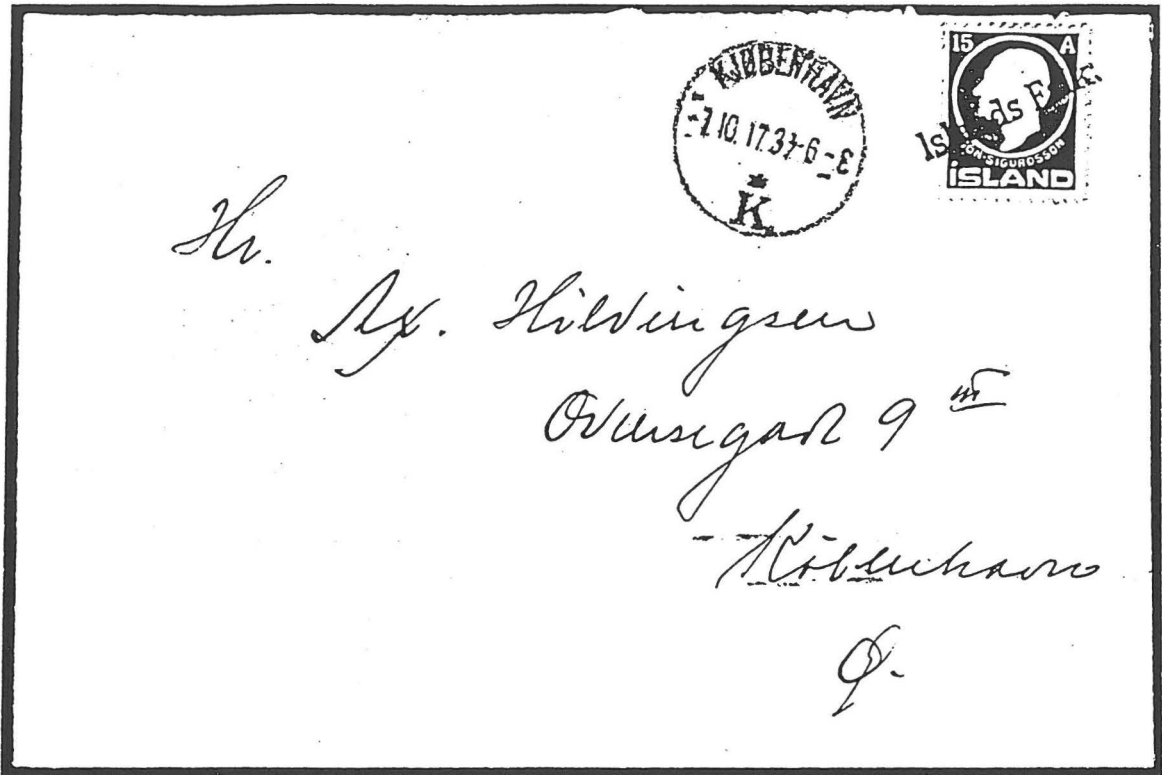 KJØBENHAVN
-7.10.17.3½-6-E
K.
15 A
Islands F.K.
JÓN·SIGURÐSSON
ÍSLAND
Hr.
Ax. Hildingsen
9 III
København
Ø.